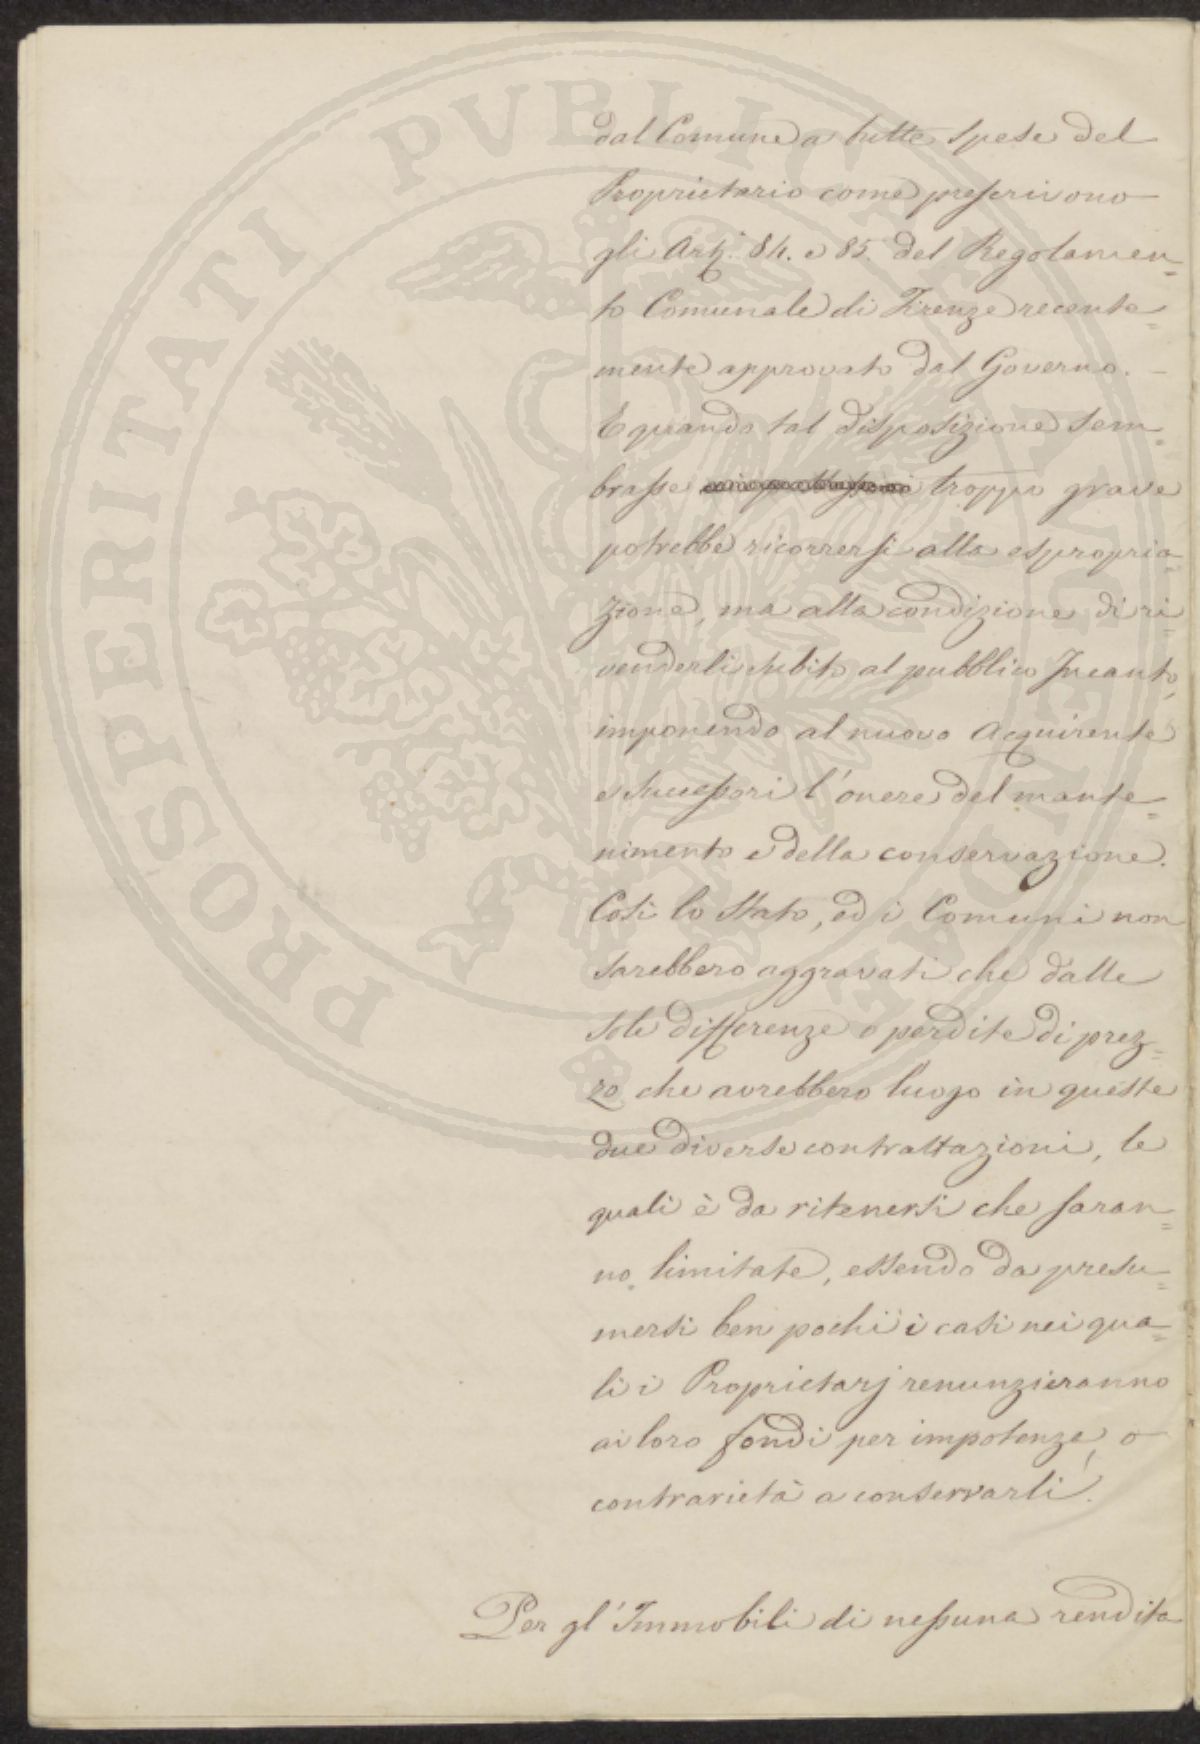 dal Comune a tutte spese del
Proprietario come prescrivono
gli Artj. 84. e 85. del Regolamen=
to Comunale di Firenze recente=
mente approvato dal Governo. –
E quando tal disposizione sem=
brasse troppo grave
potrebbe ricorrersi alla espropria=
zione, ma alla condizione di ri=
venderli subito al pubblico Incanto,
imponendo al nuovo Acquirente
e successori l'onere del mante=
nimento e della conservazione.
Così lo Stato, ed i Comuni non
sarebbero aggravati che dalle
sole differenze o perdite di prez=
zo che avrebbero luogo in queste
due diverse contrattazioni, le
quali è da ritenersi che saran=
no limitate, essendo da presu=
mersi ben pochi i casi nei qua=
li i Proprietarj renunzieranno
ai loro fondi per impotenza, o
contrarietà a conservarli.
Per gl'Immobili di nessuna rendita
PROSPERITATI PVBLICAE AVGENDAE